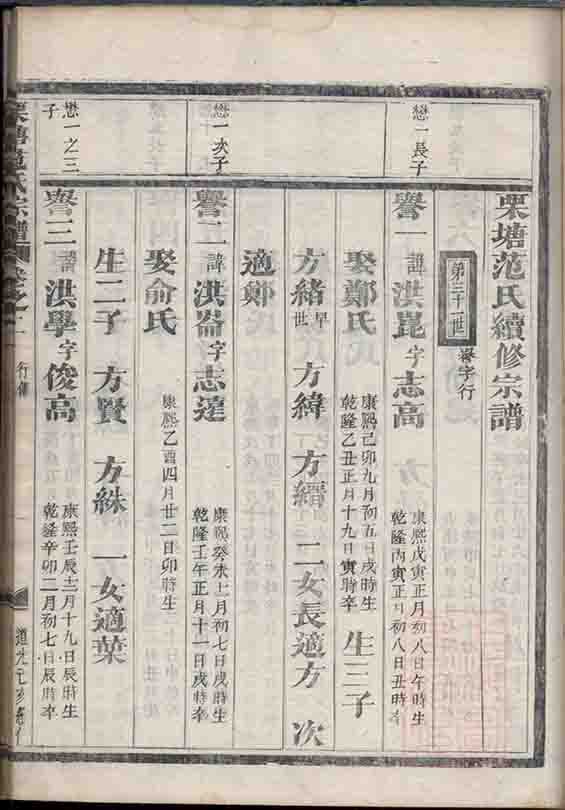 栗塘范氏續修宗譜
第三十一世
譽字行
懋一長子
譽一
諱
洪崑
字
志高
康熙戊寅正月初八日午時生
乾隆丙寅正月初八日丑時卒
娶鄭氏
康熙己卯九月初五日戌時生
乾隆乙丑正月十九日寅時卒
生三子
方緒
早
世
方緯
方縉
二女長適方
次
適鄭
懋一次子
譽二
諱
洪崙
字
志達
康熙癸未十一月初七日戌時生
乾隆壬午正月十一日戌時卒
娶俞氏
康熙乙酉四月廿二日卯時生
生二子
方賢
方絑
一女適葉
懋一之三
子
譽三
諱
洪學
字
俊高
康熙壬辰十二月十九日辰時生
乾隆辛卯二月初七日辰時卒
栗塘范氏宗譜
行傳